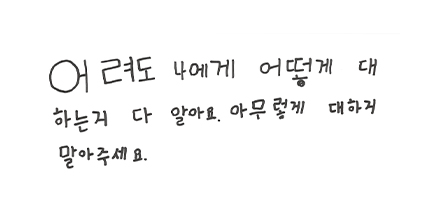 어려도 나에게 어떻게 대
하는지 다 알아요. 아무렇게 대하지
말아주세요.